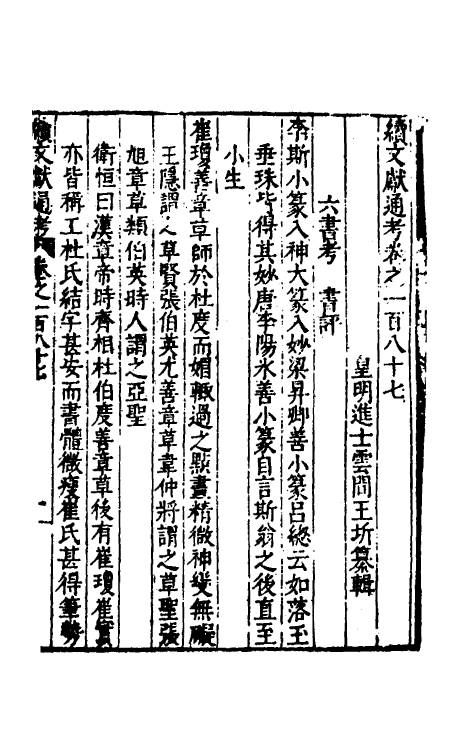 續文獻通考卷之一百八十七
皇明進士雲間王圻纂輯
六書考　書評
李斯小篆入神大篆入妙梁昇卿善小篆呂緫云如落玉
垂珠皆得其妙唐李陽氷善小篆自言斯翁之後直至
小生
崔瑗善章草師於杜度而媚輙過之㸃畫精微神變無礙
王隱謂之草賢張伯英尤善章草韋仲將謂之草聖張
旭章草類伯英時人謂之亞聖
衛恒曰漢章帝時齊相杜伯度善章草後有崔瑗崔寔
亦皆稱工杜氏結字甚安而書體微瘦崔氏甚得筆勢
續文獻通考　卷之一百八十七　一